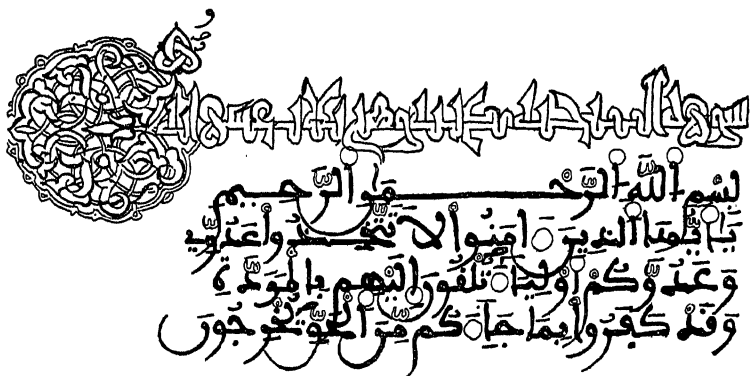 سورة
بِسْمِ اللَّهِ الرَّحْمَنِ الرَّحِيمِ
يَا أَيُّهَا الَّذِينَ ءَامَنُوا لَا تَتَّخِذُوا عَدُوِّي
وَعَدُوَّكُمْ أَوْلِيَاءَ تُلْقُونَ إِلَيْهِم بِالْمَوَدَّةِ
وَقَدْ كَفَرُوا بِمَا جَاءَكُم مِّنَ الْحَقِّ يُخْرِجُونَ